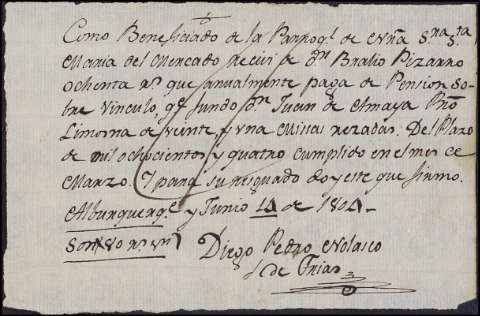 Como Beneficiado de la Parrog.l de Nña S.ra S.ta
Maria del Mercado Recivi de D.n Bralio Pizarro
ochenta r.s que anualmente paga de Pension so-
bre vinculo q.e fundo D.n Juan de Amaya Pñō
Limosna de veinte y vna Misas rezadas. Del Plazo
de mil ochocientos y quatro cumplido en el mes de
Marzo. Y para su resguardo doy este que firmo.
Alburquerq.e y Junio 14 de 1804-
Son 80 r.s v.n
Diego Pedro Nolasco
de Frias